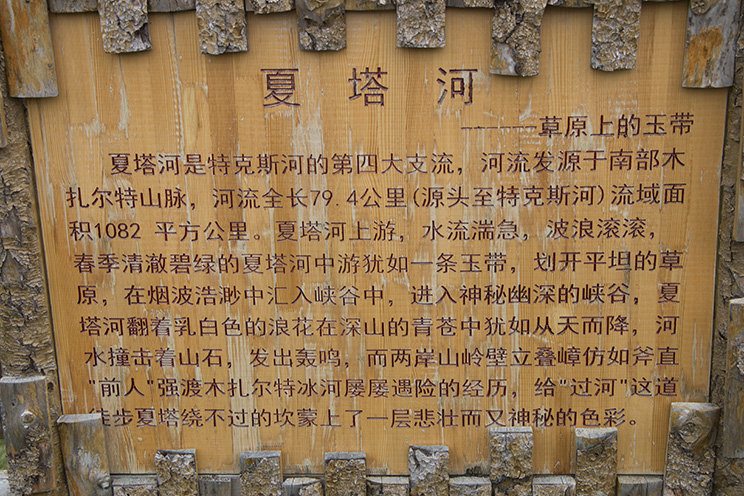 夏塔河
------草原上的玉带
夏塔河是特克斯河的第四大支流，河流发源于南部木
扎尔特山脉，河流全长79.4公里(源头至特克斯河)流域面
积1082 平方公里。夏塔河上游，水流湍急，波浪滚滚，
春季清澈碧绿的夏塔河中游犹如一条玉带，划开平坦的草
原，在烟波浩渺中汇入峡谷中，进入神秘幽深的峡谷，夏
塔河翻着乳白色的浪花在深山的青苍中犹如从天而降，河
水撞击着山石，发出轰鸣，而两岸山岭壁立叠嶂仿如斧直
"前人"强渡木扎尔特冰河屡屡遇险的经历，给"过河"这道
徒步夏塔绕不过的坎蒙上了一层悲壮而又神秘的色彩。